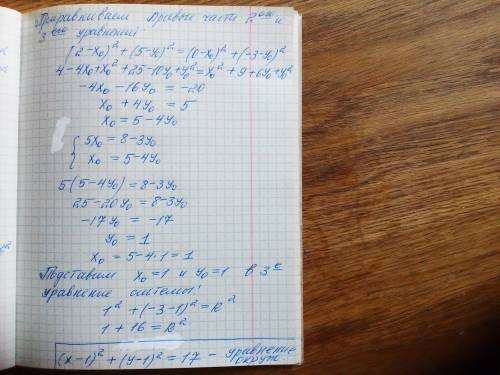 Приравниваем правые части 2ого и
3его уравнений
(2-x₀)² + (5-y₀)² = (0-x₀)² + (-3-y₀)²
4-4x₀+x₀² + 25-10y₀+y₀² = x₀² + 9+6y₀+y₀²
-4x₀-16y₀ = -20
x₀ + 4y₀ = 5
x₀ = 5-4y₀
{ 5x₀ = 8-3y₀
x₀ = 5-4y₀
5(5-4y₀) = 8-3y₀
25-20y₀ = 8-3y₀
-17y₀ = -17
y₀ = 1
x₀ = 5-4·1 = 1
Подставим x₀=1 и y₀=1 в 3е
уравнение системы:
1² + (-3-1)² = R²
1 + 16 = R²
(x-1)² + (y-1)² = 17 - уравнение
окруж